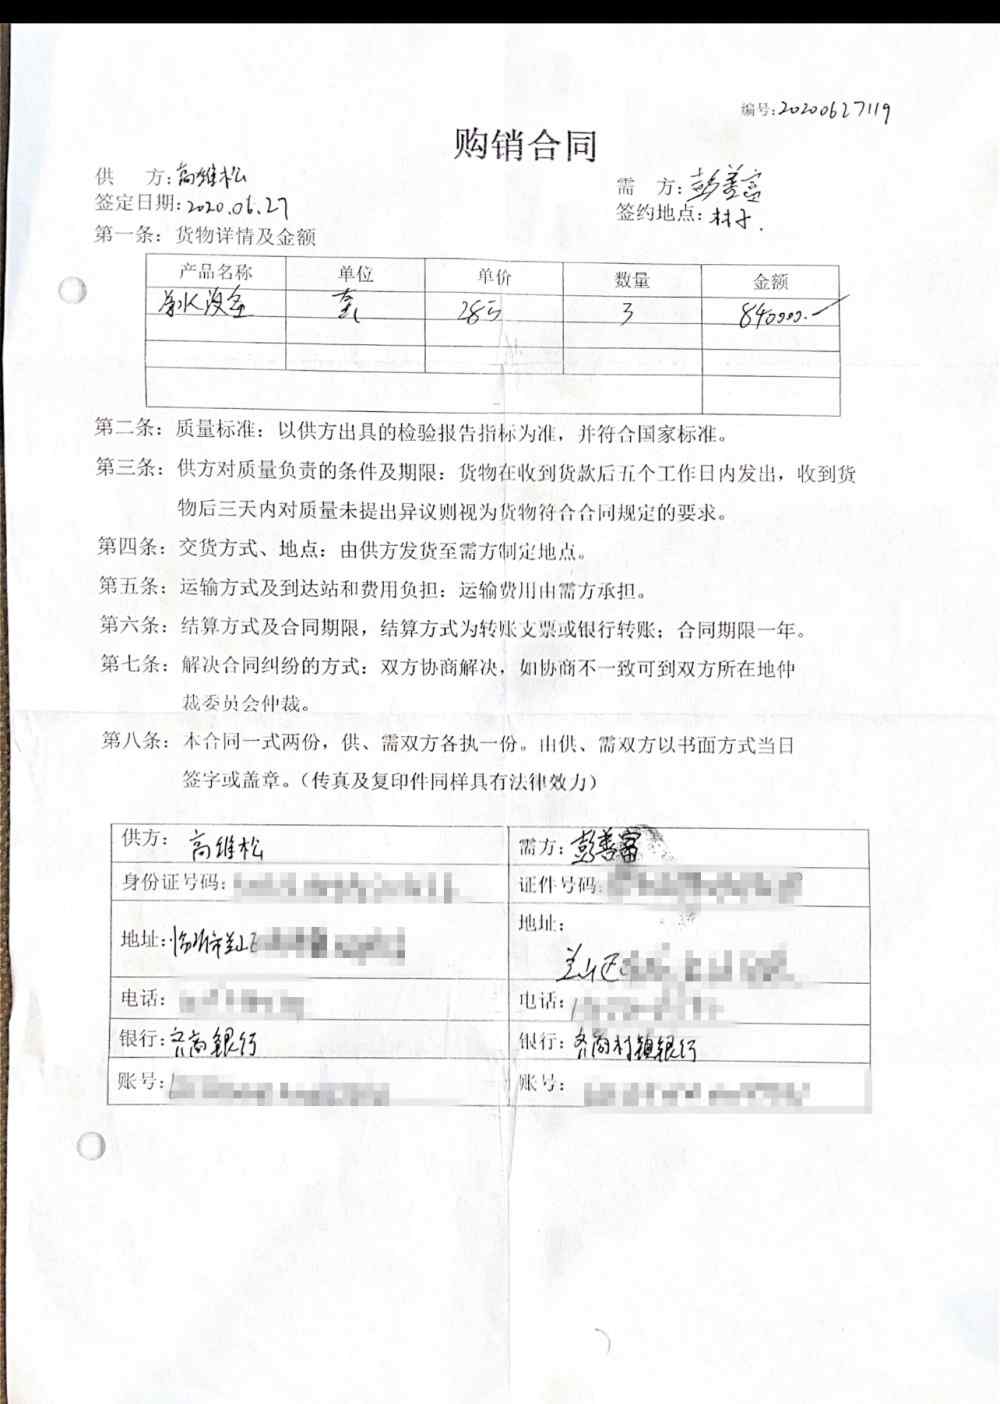 编号:20200627119
购销合同
供 方:高维松
需 方:彭善富
签定日期:2020.06.27
签约地点:村子.
第一条:货物详情及金额
产品名称 单位 单价 数量 金额
净水设备 套 28万 3 840000.-
第二条:质量标准:以供方出具的检验报告指标为准,并符合国家标准。
第三条:供方对质量负责的条件及期限:货物在收到货款后五个工作日内发出,收到货
物后三天内对质量未提出异议则视为货物符合合同规定的要求。
第四条:交货方式、地点:由供方发货至需方制定地点。
第五条:运输方式及到达站和费用负担:运输费用由需方承担。
第六条:结算方式及合同期限,结算方式为转账支票或银行转账;合同期限一年。
第七条:解决合同纠纷的方式:双方协商解决,如协商不一致可到双方所在地仲
裁委员会仲裁。
第八条:本合同一式两份,供、需双方各执一份。由供、需双方以书面方式当日
签字或盖章。(传真及复印件同样具有法律效力)
供方:高维松
需方:彭善富
身份证号码:
证件号码:
地址:临沂市兰山区
地址:
兰山区
电话:
电话:
银行:齐商银行
银行:齐商村镇银行
账号:
账号: